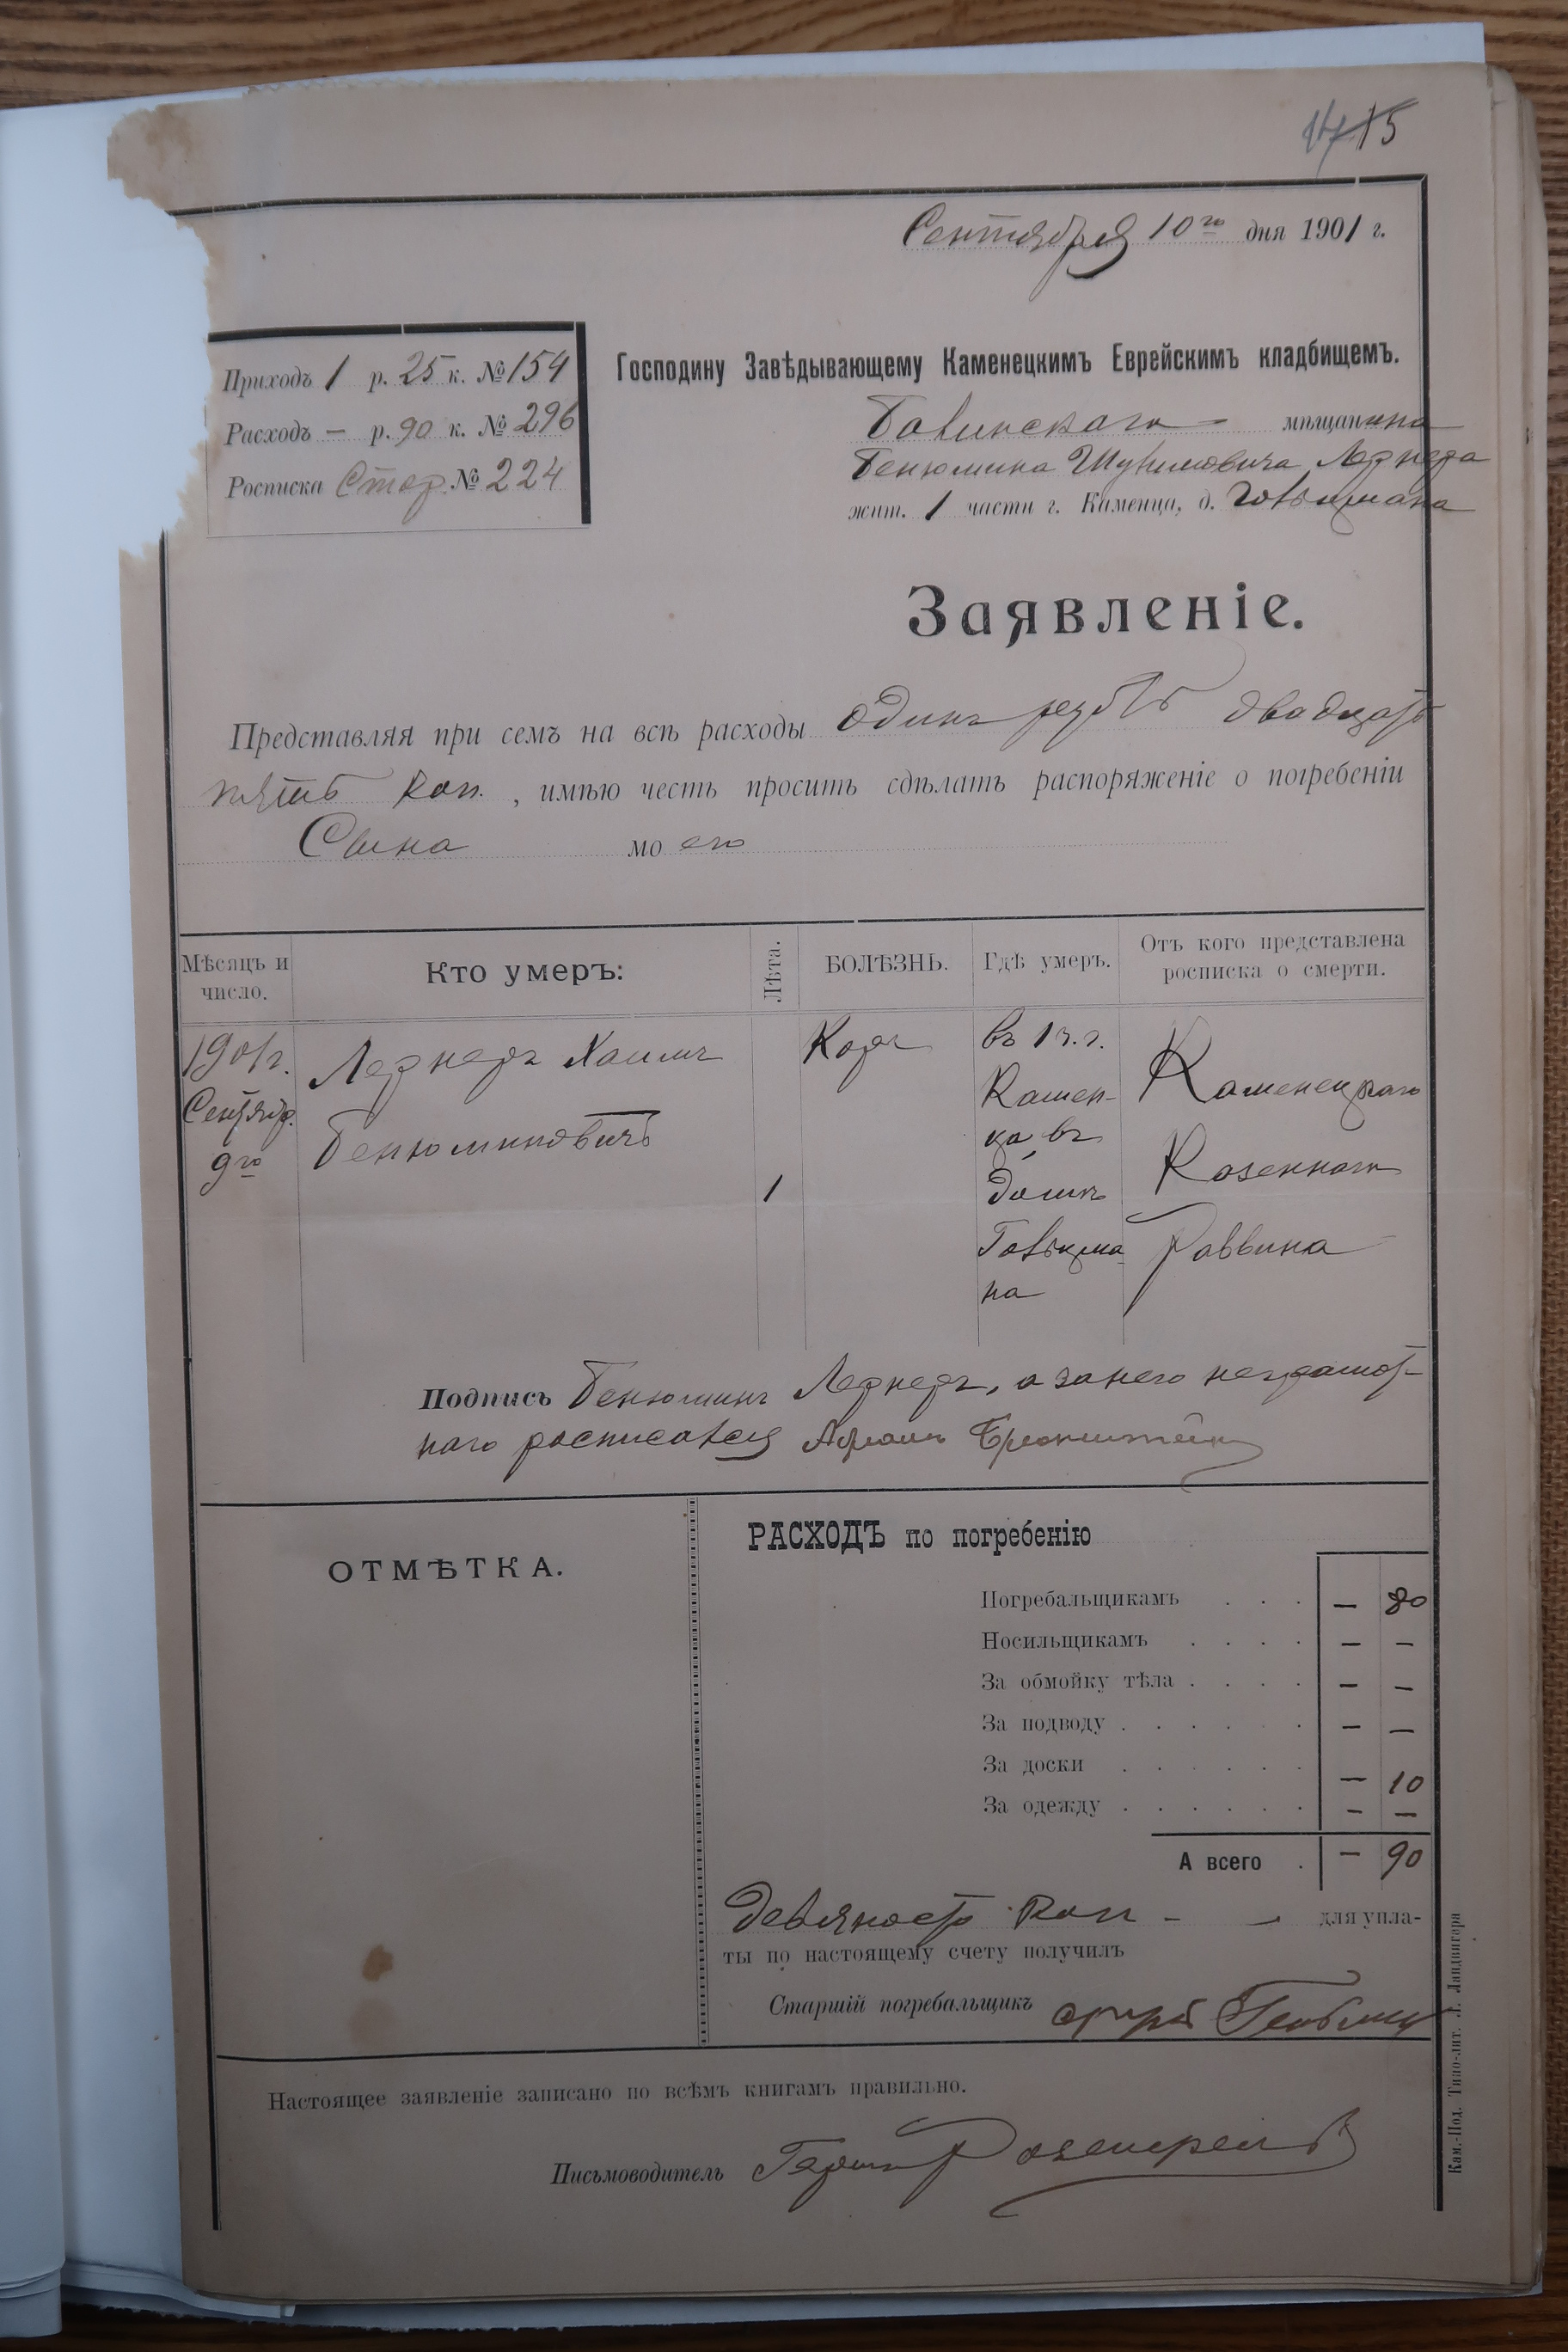 15
Сентября 10го дня 1901 г.
Приходъ 1 р. 25 к. № 154
Расходъ — р. 90 к. № 296
Росписка Стар. № 224
Господину Завѣдывающему Каменецкимъ Еврейскимъ кладбищемъ.
мѣщанина
Бенюмина Шулимовича Лернера
жит. 1 части г. Каменца, д. Гольцмана
Заявленіе.
Представляя при семъ на всѣ расходы одинъ рубль двадцать
пять коп. , имѣю честь просить сдѣлать распоряженіе о погребеніи
Сына моего
Мѣсяцъ и число.
Кто умеръ:
Лѣта.
БОЛѢЗНЬ.
Гдѣ умеръ.
Отъ кого представлена росписка о смерти.
1901 г.
Сентябр.
9го
Лернеръ Хаимъ
Бенюминовичъ
1
Корь
въ 1 ч. г.
Камен-
ца въ
домѣ
Гольцма-
на
Каменецкаго
Казеннаго
Раввина
Подпись Бенюминъ Лернеръ, а за него неграмот-
наго росписался Абрамъ Бронштейнъ
ОТМѢТКА.
РАСХОДЪ по погребенію
Погребальщикамъ . . . — 80
Носильщикамъ . . . . — —
За обмойку тѣла . . . . — —
За подводу . . . . . . — —
За доски . . . . . . — 10
За одежду . . . . . . — —
А всего . — 90
Девяносто коп — для упла-
ты по настоящему счету получилъ
Старшій погребальщикъ
Настоящее заявленіе записано по всѣмъ книгамъ правильно.
Письмоводитель Герш
Кам.-Под. Типо-лит. Л. Ландвигера